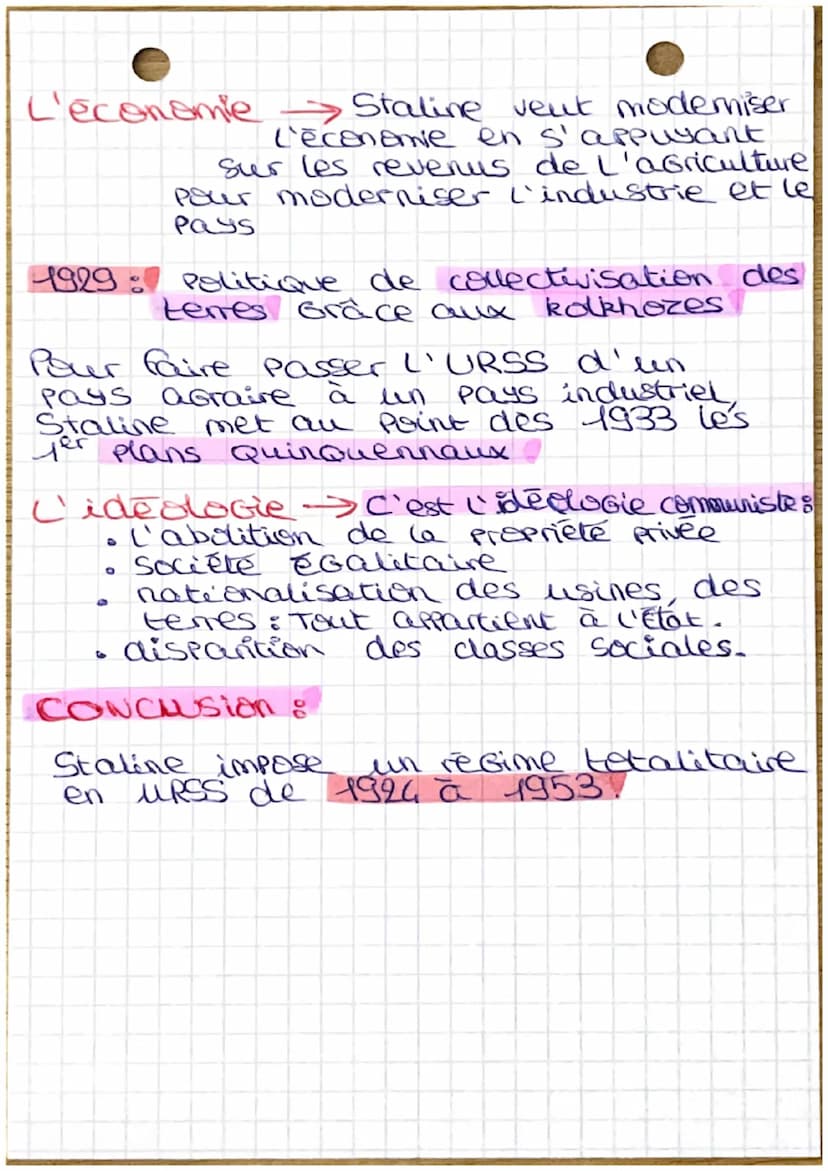 L'économie → Staline veut moderniser
l'économie en s'appuyant
sur les revenus de l'agriculture
pour moderniser l'industrie et le
pays
1929 : Politique de collectivisation des
terres Grâce aux kolkhozes
Pour faire passer l'URSS d'un
pays agraire à un pays industriel,
Staline met au point dès 1933 les
1er plans quinquennaux
L'idéologie → C'est l'idéologie communiste :
• L'abolition de la propriété privée
• Société égalitaire
• nationalisation des usines, des
terres : Tout appartient à l'État.
• disparition des classes sociales.
CONCLUSION :
Staline impose un régime totalitaire
en URSS de 1924 à 1953.